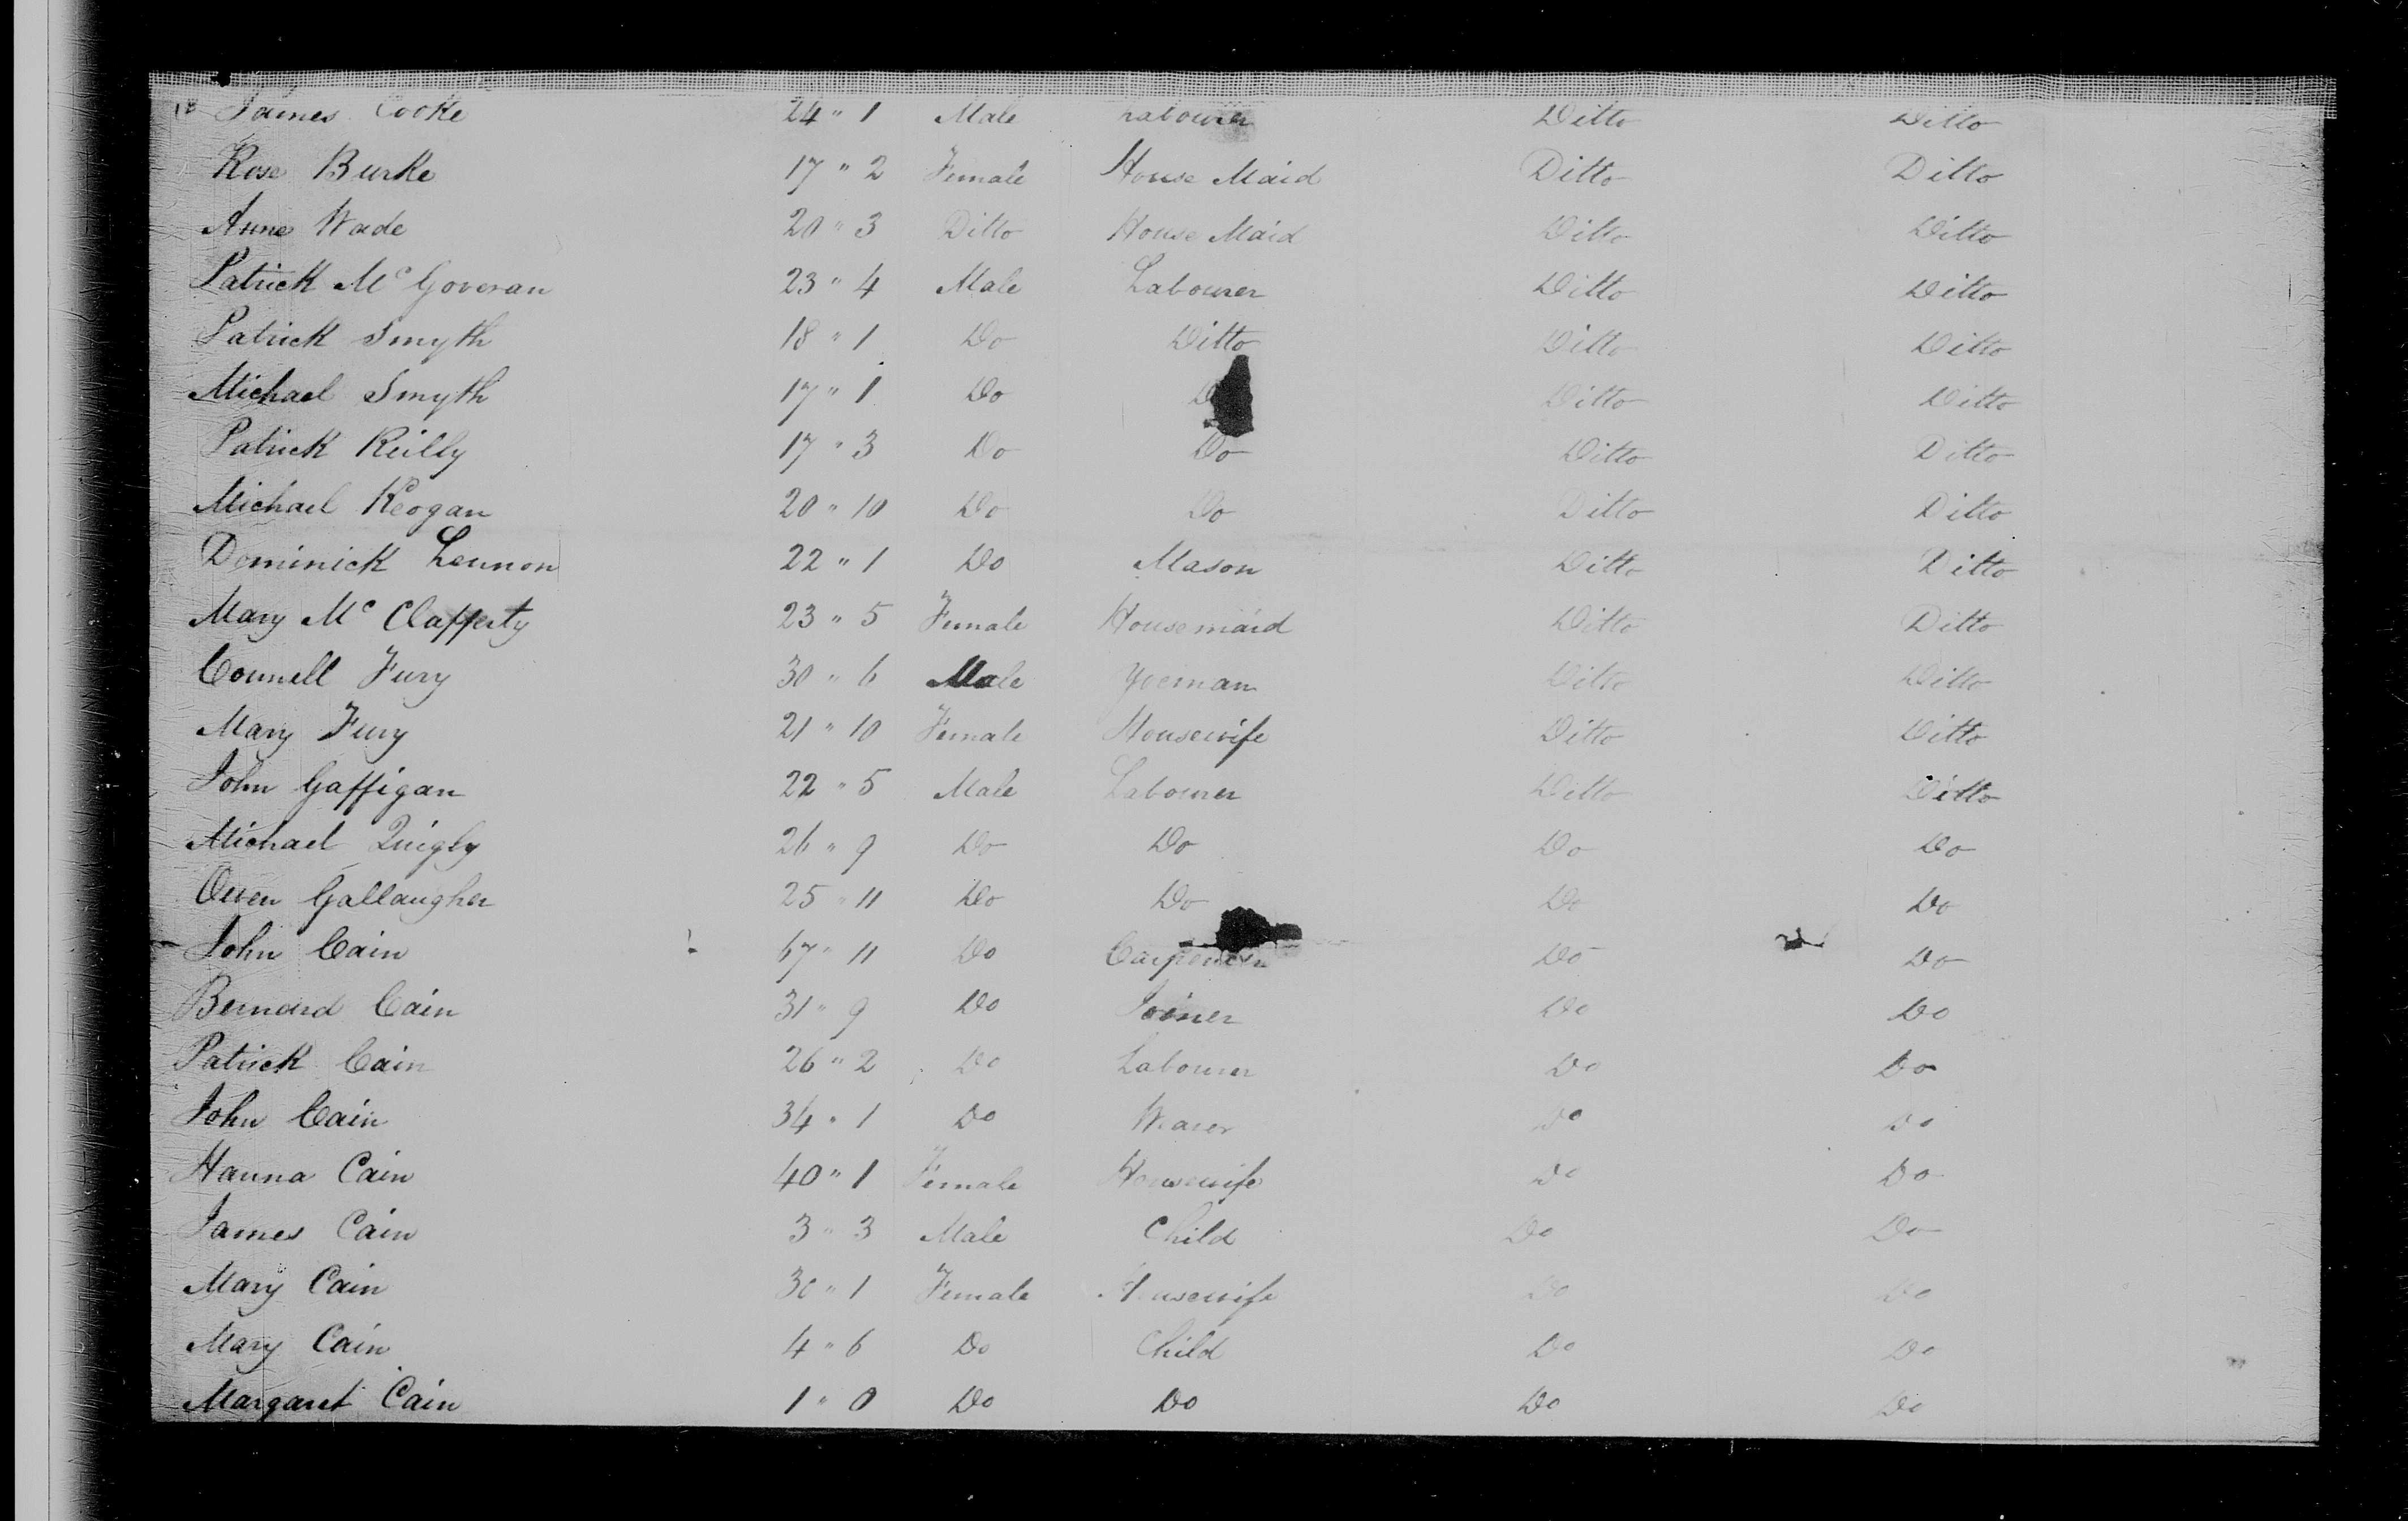 James Cooke 24 " 1 Male Labourer Ditto Ditto
Rose Burke 17 " 2 Female House Maid Ditto Ditto
Anne Wade 20 " 3 Ditto House Maid Ditto Ditto
Patrick Mc Goveran 23 " 4 Male Labourer Ditto Ditto
Patrick Smyth 18 " 1 Do Ditto Ditto Ditto
Michael Smyth 17 " 1 Do Ditto Ditto
Patrick Reilly 17 " 3 Do Do Ditto Ditto
Michael Keogan 20 " 10 Do Do Ditto Ditto
Dominick Lennon 22 " 1 Do Mason Ditto Ditto
Mary Mc Clafferty 23 " 5 Female Housemaid Ditto Ditto
Connell Fury 30 " 6 Male Yoeman Ditto Ditto
Mary Fury 21 " 10 Female Housewife Ditto Ditto
John Gaffigan 22 " 5 Male Labourer Ditto Ditto
Michael Quigly 26 " 9 Do Do Do Do
Owen Gallaugher 25 " 11 Do Do Do Do
John Cain 67 " 11 Do Carpenter Do Do
Bernard Cain 31 " 9 Do Joiner Do Do
Patrick Cain 26 " 2 Do Labourer Do Do
John Cain 34 " 1 Do Do Do
Hanna Cain 40 " 1 Female Housewife Do Do
James Cain 3 " 3 Male Child Do Do
Mary Cain 30 " 1 Female Housewife Do Do
Mary Cain 4 " 6 Do Child Do Do
Margaret Cain 1 " 0 Do Do Do Do